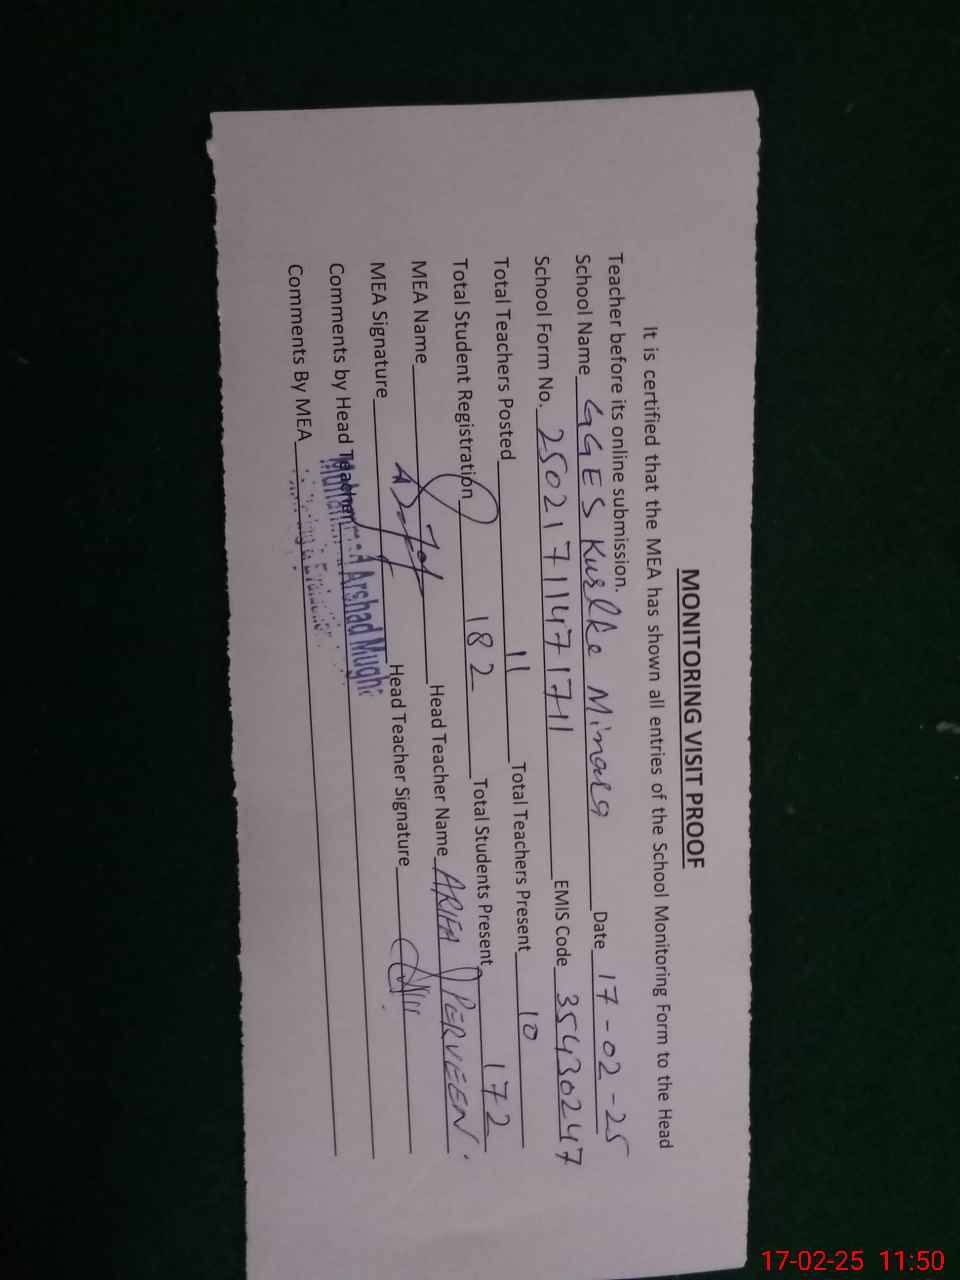 MONITORING VISIT PROOF
It is certified that the MEA has shown all entries of the School Monitoring Form to the Head
Teacher before its online submission.
School Name GGES Kurlke Minara Date 17-02-25
School Form No. 25021711471711 EMIS Code 35430247
Total Teachers Posted 11 Total Teachers Present 10
Total Student Registration 182 Total Students Present 172
MEA Name Head Teacher Name ARIFA PERVEEN.
MEA Signature Head Teacher Signature
Comments by Head Teacher
Arshad Mugh
Comments By MEA
17-02-25 11:50